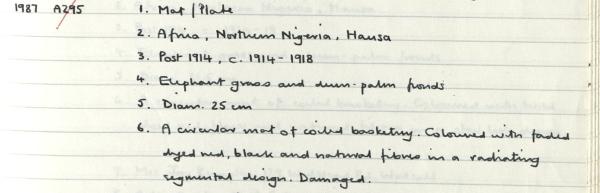 1987 A295 1. Mat / Plate
2. Africa, Northern Nigeria, Hausa
3. Post 1914, c. 1914-1918
4. Elephant grass and dum-palm fronds
5. Diam. 25 cm
6. A circular mat of coiled basketry. Coloured with faded
dyed red, black and natural fibres in a radiating
segmental design. Damaged.